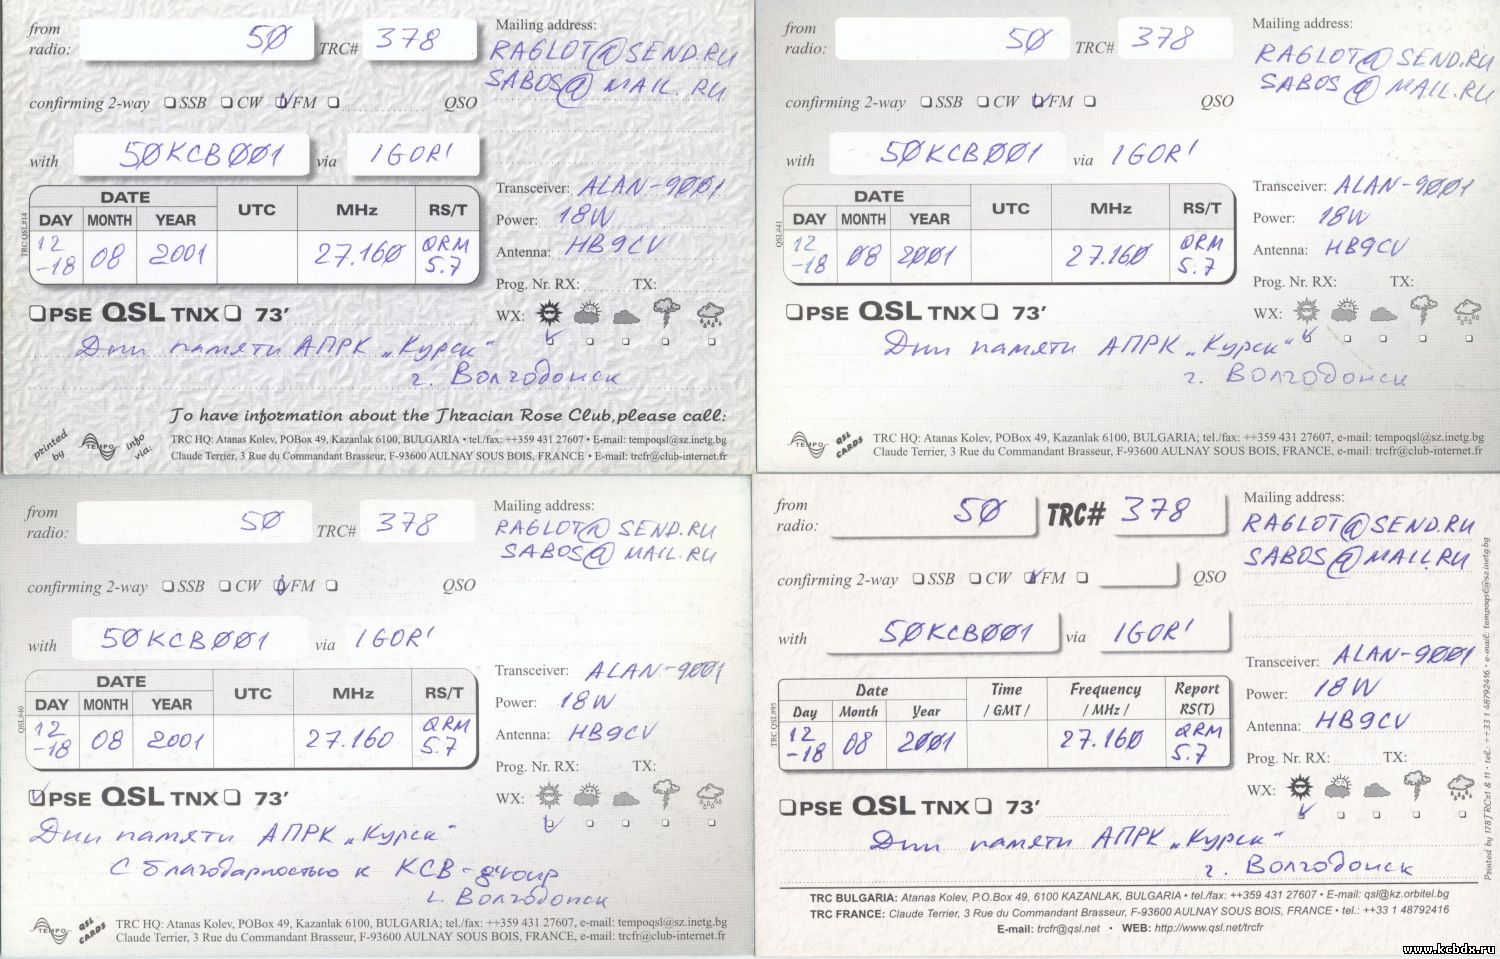 from radio: 50 TRC# 378
Mailing address:
RA6LOT@SEND.RU
SABOS@MAIL.RU
confirming 2-way SSB CW FM QSO
with 50KCB001 via IGOR'
DATE UTC MHz RS/T
DAY MONTH YEAR
12 -18 08 2001 27.160 QRM 5.7
TRC QSL#14
Transceiver: ALAN-9001
Power: 18W
Antenna: HB9CV
Prog. Nr. RX: TX:
WX:
PSE QSL TNX 73'
Дни памяти АПРК „Курск"
г. Волгодонск
To have information about the Thracian Rose Club, please call:
printed by TEMPO info via:
TRC HQ: Atanas Kolev, POBox 49, Kazanlak 6100, BULGARIA • tel./fax: ++359 431 27607 • E-mail: tempoqsl@sz.inetg.bg
Claude Terrier, 3 Rue du Commandant Brasseur, F-93600 AULNAY SOUS BOIS, FRANCE • E-mail: trcfr@club-internet.fr
from radio: 50 TRC# 378
Mailing address:
RA6LOT@SEND.RU
SABOS@MAIL.RU
confirming 2-way SSB CW FM QSO
with 50KCB001 via IGOR'
DATE UTC MHz RS/T
DAY MONTH YEAR
12 -18 08 2001 27.160 QRM 5.7
QSL#41
Transceiver: ALAN-9001
Power: 18W
Antenna: HB9CV
Prog. Nr. RX: TX:
WX:
PSE QSL TNX 73'
Дни памяти АПРК „Курск"
г. Волгодонск
TEMPO QSL CARDS
TRC HQ: Atanas Kolev, POBox 49, Kazanlak 6100, BULGARIA; tel./fax: ++359 431 27607, E-mail: tempoqsl@sz.inetg.bg
Claude Terrier, 3 Rue du Commandant Brasseur, F-93600 AULNAY SOUS BOIS, FRANCE, e-mail: trcfr@club-internet.fr
from radio: 50 TRC# 378
Mailing address:
RA6LOT@SEND.RU
SABOS@MAIL.RU
confirming 2-way SSB CW FM QSO
with 50KCB001 via IGOR'
DATE UTC MHz RS/T
DAY MONTH YEAR
12 -18 08 2001 27.160 QRM 5.7
QSL#40
Transceiver: ALAN-9001
Power: 18W
Antenna: HB9CV
Prog. Nr. RX: TX:
WX:
PSE QSL TNX 73'
Дни памяти АПРК „Курск"
С благодарностью к KCB-group
г. Волгодонск
TEMPO QSL CARDS
TRC HQ: Atanas Kolev, POBox 49, Kazanlak 6100, BULGARIA; tel./fax: ++359 431 27607, e-mail: tempoqsl@sz.inetg.bg
Claude Terrier, 3 Rue du Commandant Brasseur, F-93600 AULNAY SOUS BOIS, FRANCE, e-mail: trcfr@club-internet.fr
from radio: 50 TRC# 378
Mailing address:
RA6LOT@SEND.RU
SABOS@MAIL.RU
confirming 2-way SSB CW FM QSO
with 50KCB001 via IGOR'
Date Time / GMT / Frequency / MHz / Report RS(T)
Day Month Year
12 -18 08 2001 27.160 QRM 5.7
TRC QSL#95
Transceiver: ALAN-9001
Power: 18W
Antenna: HB9CV
Prog. Nr. RX: TX:
WX:
PSE QSL TNX 73'
Дни памяти АПРК „Курск"
г. Волгодонск
TRC BULGARIA: Atanas Kolev, P.O.Box 49, 6100 KAZANLAK, BULGARIA • tel./fax: ++359 431 27607 • E-mail: qsl@kz.orbitel.bg
TRC FRANCE: Claude Terrier, 3 Rue du Commandant Brasseur, F-93600 AULNAY SOUS BOIS, FRANCE • tel.: ++33 1 48792416
E-mail: trcfr@qsl.net • WEB: http://www.qsl.net/trcfr
www.kcbdx.ru